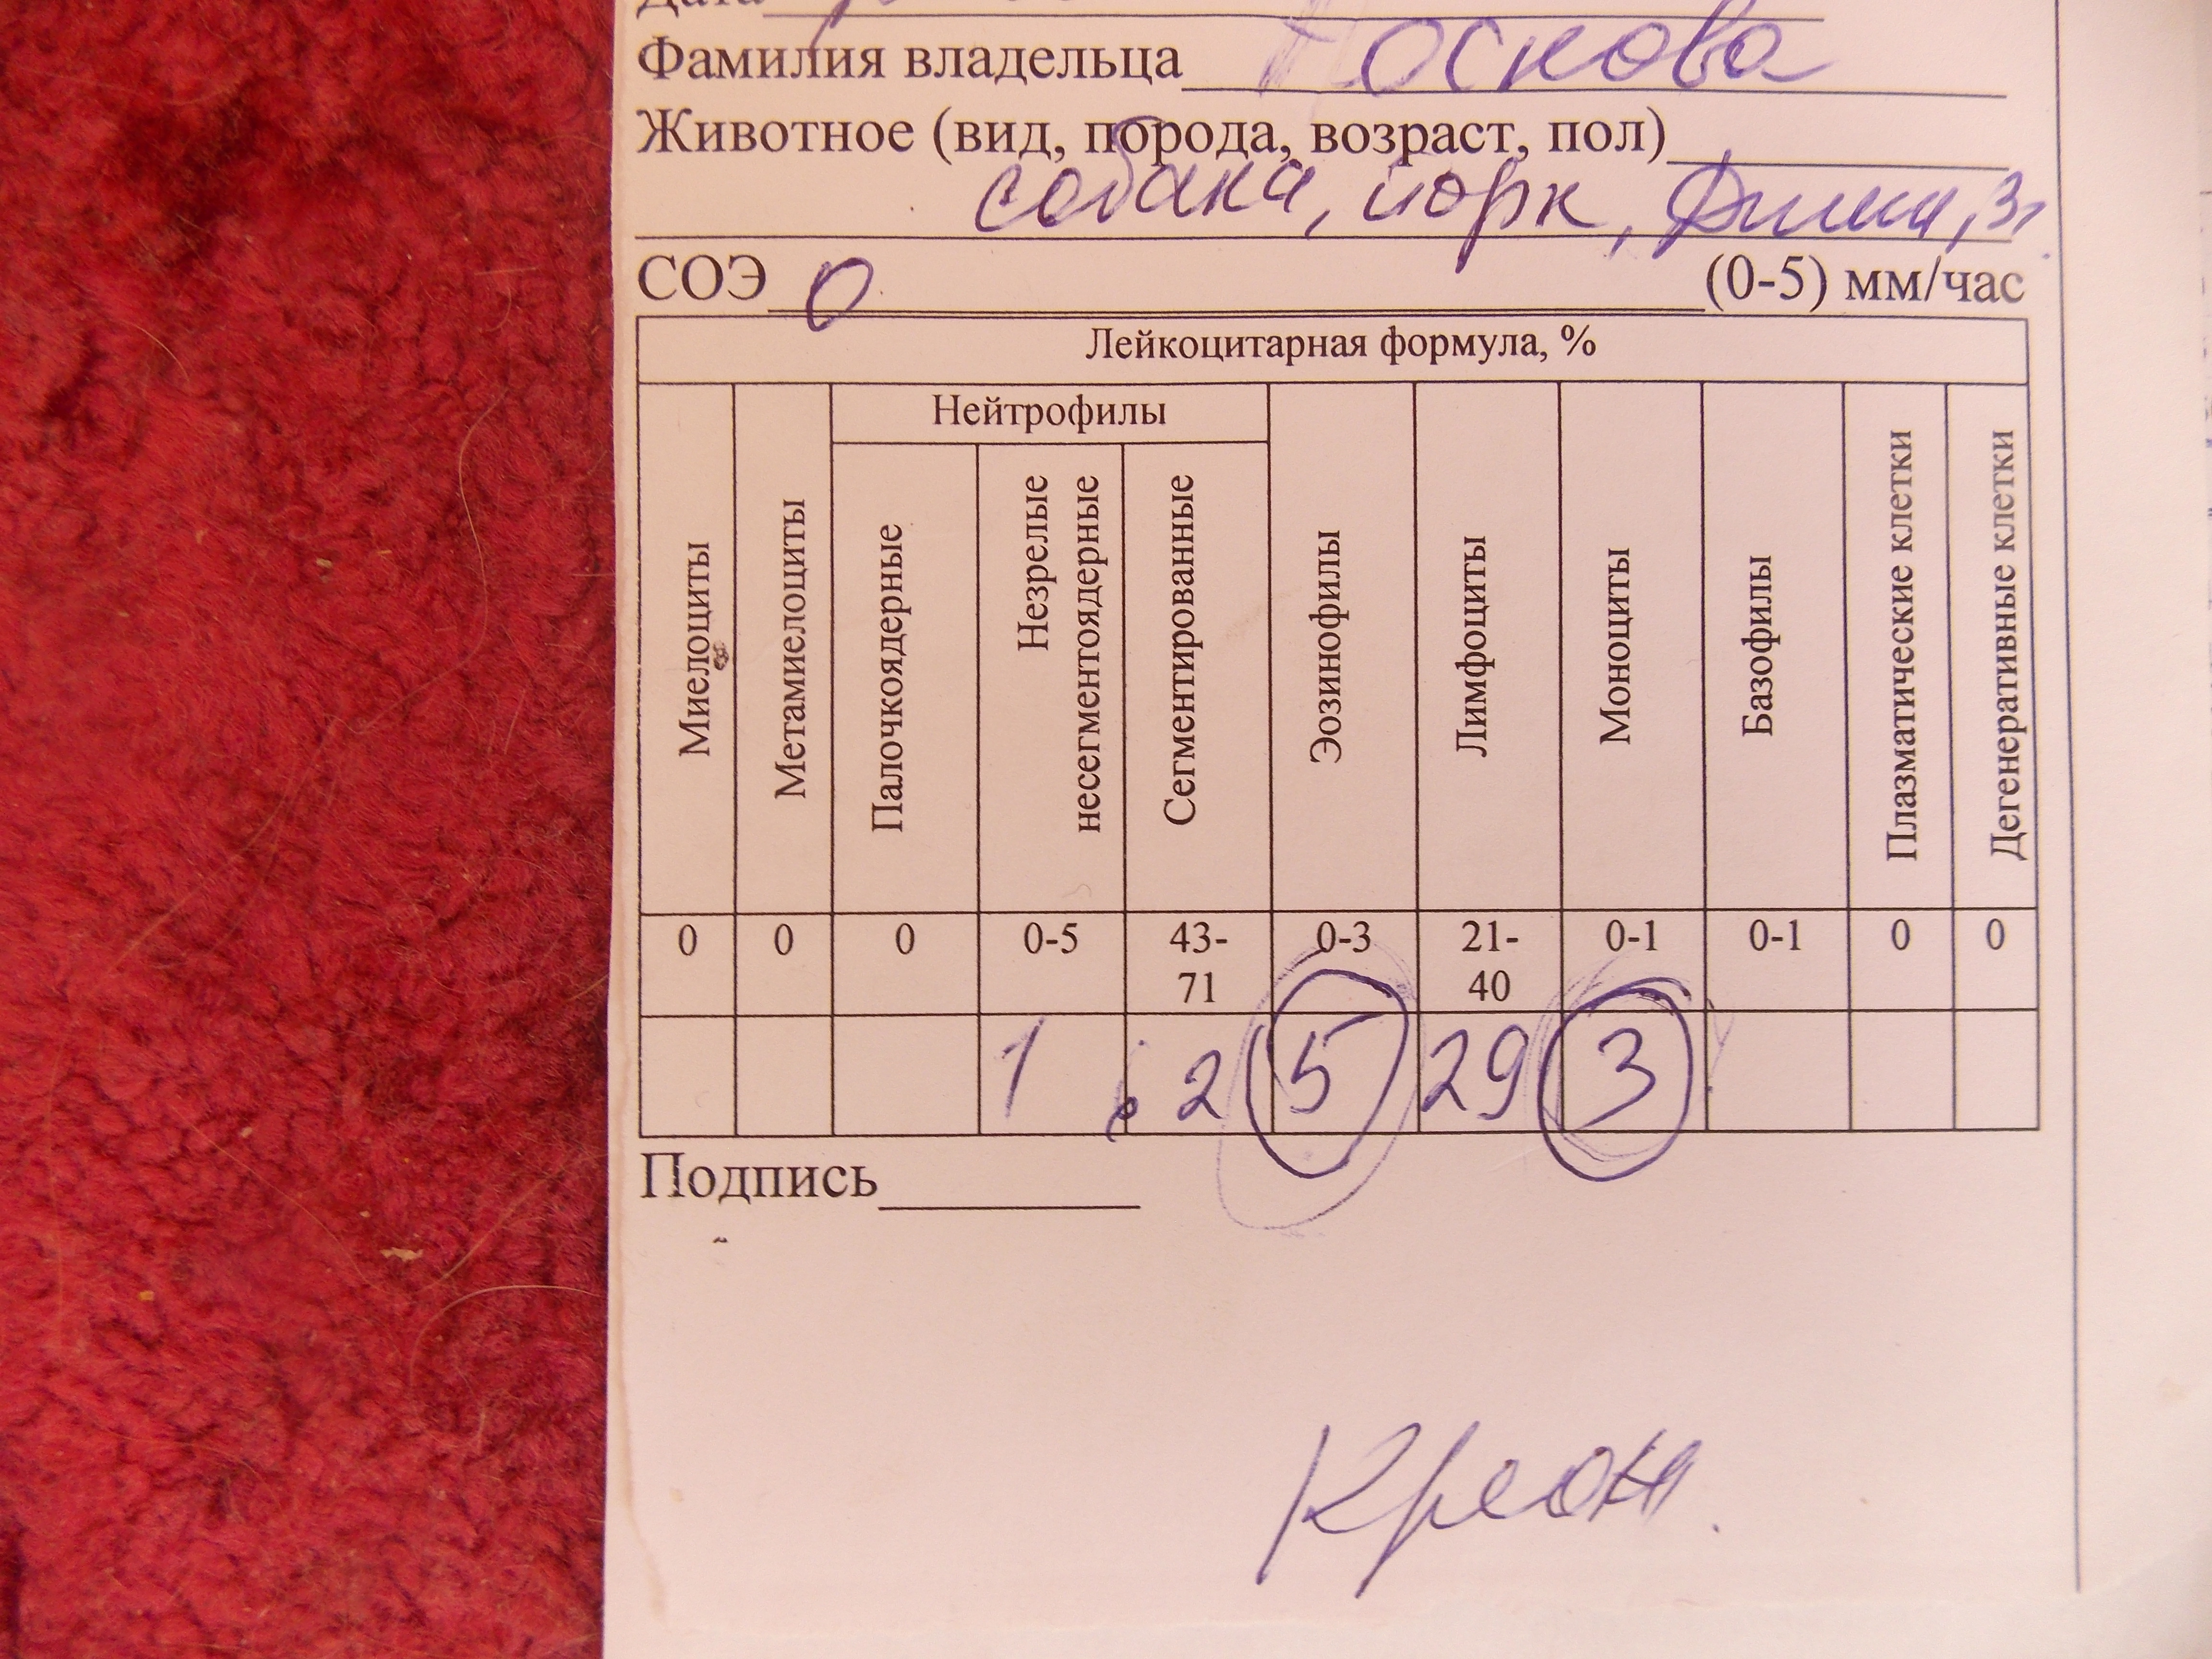 Дата
Фамилия владельца Носкова
Животное (вид, порода, возраст, пол)
собака, йорк, 3г.
СОЭ 0 (0-5) мм/час
Лейкоцитарная формула, %
Нейтрофилы
Миелоциты
Метамиелоциты
Палочкоядерные
Незрелые
несегментоядерные
Сегментированные
Эозинофилы
Лимфоциты
Моноциты
Базофилы
Плазматические клетки
Дегенеративные клетки
0 0 0 0-5 43- 0-3 21- 0-1 0-1 0 0
71 40
1 62 5 29 3
Подпись
Креон.